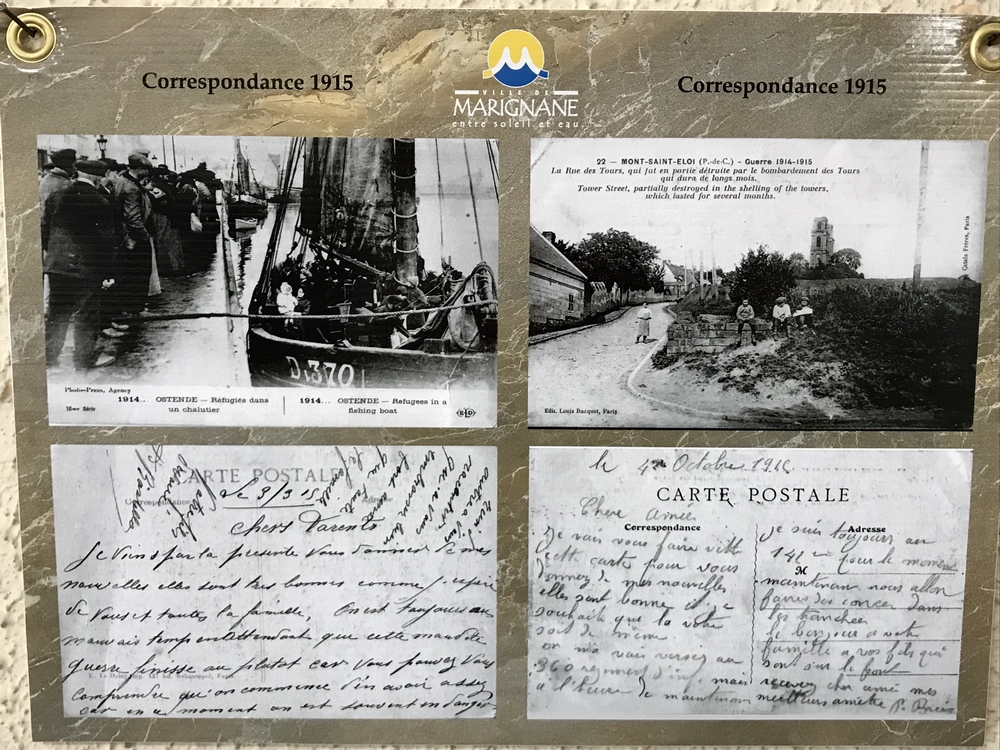 Correspondance 1915
VILLE DE
MARIGNANE
entre soleil et eau
Correspondance 1915
D.370
Photo-Press, Agency
16me Série
1914... OSTENDE — Réfugiés dans
un chalutier
1914... OSTENDE — Refugees in a
fishing boat
ELD
22 — MONT-SAINT-ELOI (P.-de-C.) - Guerre 1914-1915
La Rue des Tours, qui fut en partie détruite par le bombardement des Tours
qui dura de longs mois.
Tower Street, partially destroyed in the shelling of the towers,
which lasted for several months.
Edit. Louis Racquet, Paris
CARTE POSTALE
Correspondance
Le 3/3 15
chers Parents
Je viens par la présente vous donner de mes
nouvelles elles sont tres bonnes comme j'espère
de vous et toutes la famille, On est toujours au
mauvais temp en attendant que cette maudite
guerre finisse au plutot car vous pouvez vous
comprendre qu'on commence d'en avoir assez
car en ce moment on est souvent en danger
le 4 Octobre
CARTE POSTALE
Chere Amie
Correspondance
Je vais vous faire vitte
cette carte pour vous
donnez de mes nouvelles
elles sont bonne et je
souhaite que la votre
soit de meme
on ma vais versez au
360 regiment d'in mais
a l'heure de maintenant
Adresse
je suis toujours au
pour le moment
M
maintenan nous allon
faire des corvee dans
les tranchees
le bonjour a vote
famille a vos fils qui
sont sur le front
recevez cher amie mes
meilleurs amitie